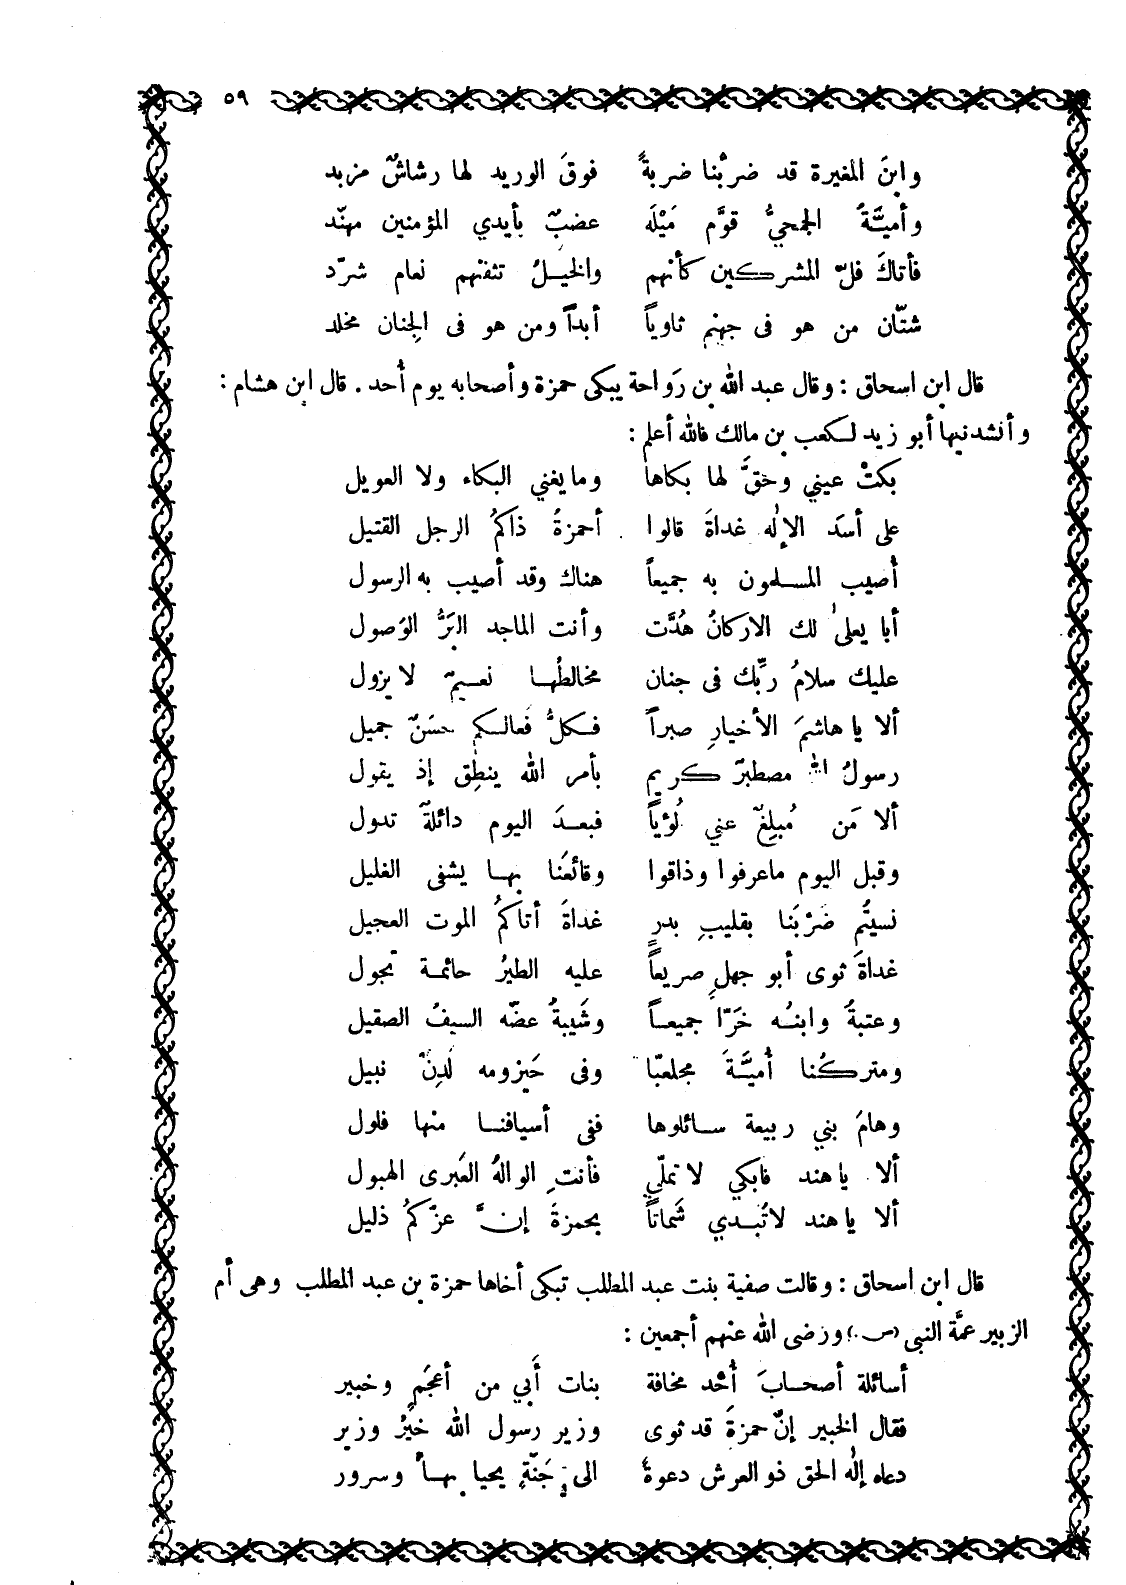 ٥٩
وابنَ المغيرة قد ضربْنا ضربةً فوقَ الوريد لها رشاشٌ مزبد
وأميَّةُ الجمحيُّ قوَّم مَيْلَه عضبٌ بأيدي المؤمنين مهنّد
فأتاكَ فلّ المشركين كأنهم والخيلُ تثفنهم نعام شرّد
شتّان من هو فى جهنم ثاوياً أبداً ومن هو فى الجِنان مخلد
قال ابن اسحاق : وقال عبد الله بن رَواحة يبكى حمزة وأصحابه يوم أُحد . قال ابن هشام :
وأنشدنيها أبو زيد لكعب بن مالك فالله أعلم :
بكتْ عيني وحقَّ لها بكاها وما يغني البكاء ولا العويل
على أسَد الإلٰه غداةَ قالوا أحمزةُ ذاكمُ الرجل القتيل
أُصيب المسلمون به جميعاً هناك وقد أصيب به الرسول
أبا يعلىٰ لك الاركانُ هُدَّت وأنت الماجد البَرُّ الوَصول
عليك سلامُ ربِّك فى جنان مخالطُها نعيمٌ لا يزول
ألا يا هاشمَ الأخيارِ صبراً فكلُّ فَعالكم حسَنٌ جميل
رسولُ الله مصطبرٌ كريم بأمر الله ينطِق إذ يقول
ألا مَن مُبلِغٌ عني لُؤياً فبعدَ اليوم دائلةٌ تدول
وقبل اليوم ماعرفوا وذاقوا وقائعَنا بها يشفى الغليل
نسيتُم ضَرْبَنا بقليبِ بدرٍ غداةَ أتاكمُ الموت العجيل
غداةَ ثوى أبو جهلٍ صريعاً عليه الطيرُ حائمة تجول
وعتبةُ وابنُه خَرّا جميعاً وشَيبةُ عضّه السيفُ الصقيل
ومتركُنا أُميَّةَ مجلعبّا وفى حَيزومه لَدِنٌ نبيل
وهامَ بني ربيعة سائلوها ففى أسيافنا منها فلول
ألا يا هند فابكي لا تملّي فأنتِ الوالهُ العَبرى الهبول
ألا يا هند لاتُبدي شَماتاً بحمزةَ إنَّ عزّكمُ ذليل
قال ابن اسحاق : وقالت صفية بنت عبد المطلب تبكى أخاها حمزة بن عبد المطلب وهى أم
الزبير عمَّة النبى (ص) ورضى الله عنهم أجمعين :
أسائلة أصحابَ أُحْد مخافة بنات أَبي من أعجَمٍ وخبير
فقال الخبير إنّ حمزةَ قد ثوى وزير رسول الله خيْرُ وزير
دعاه إلٰه الحق ذو العرش دعوةً الى جَنّةٍ يحيا بها وسرور